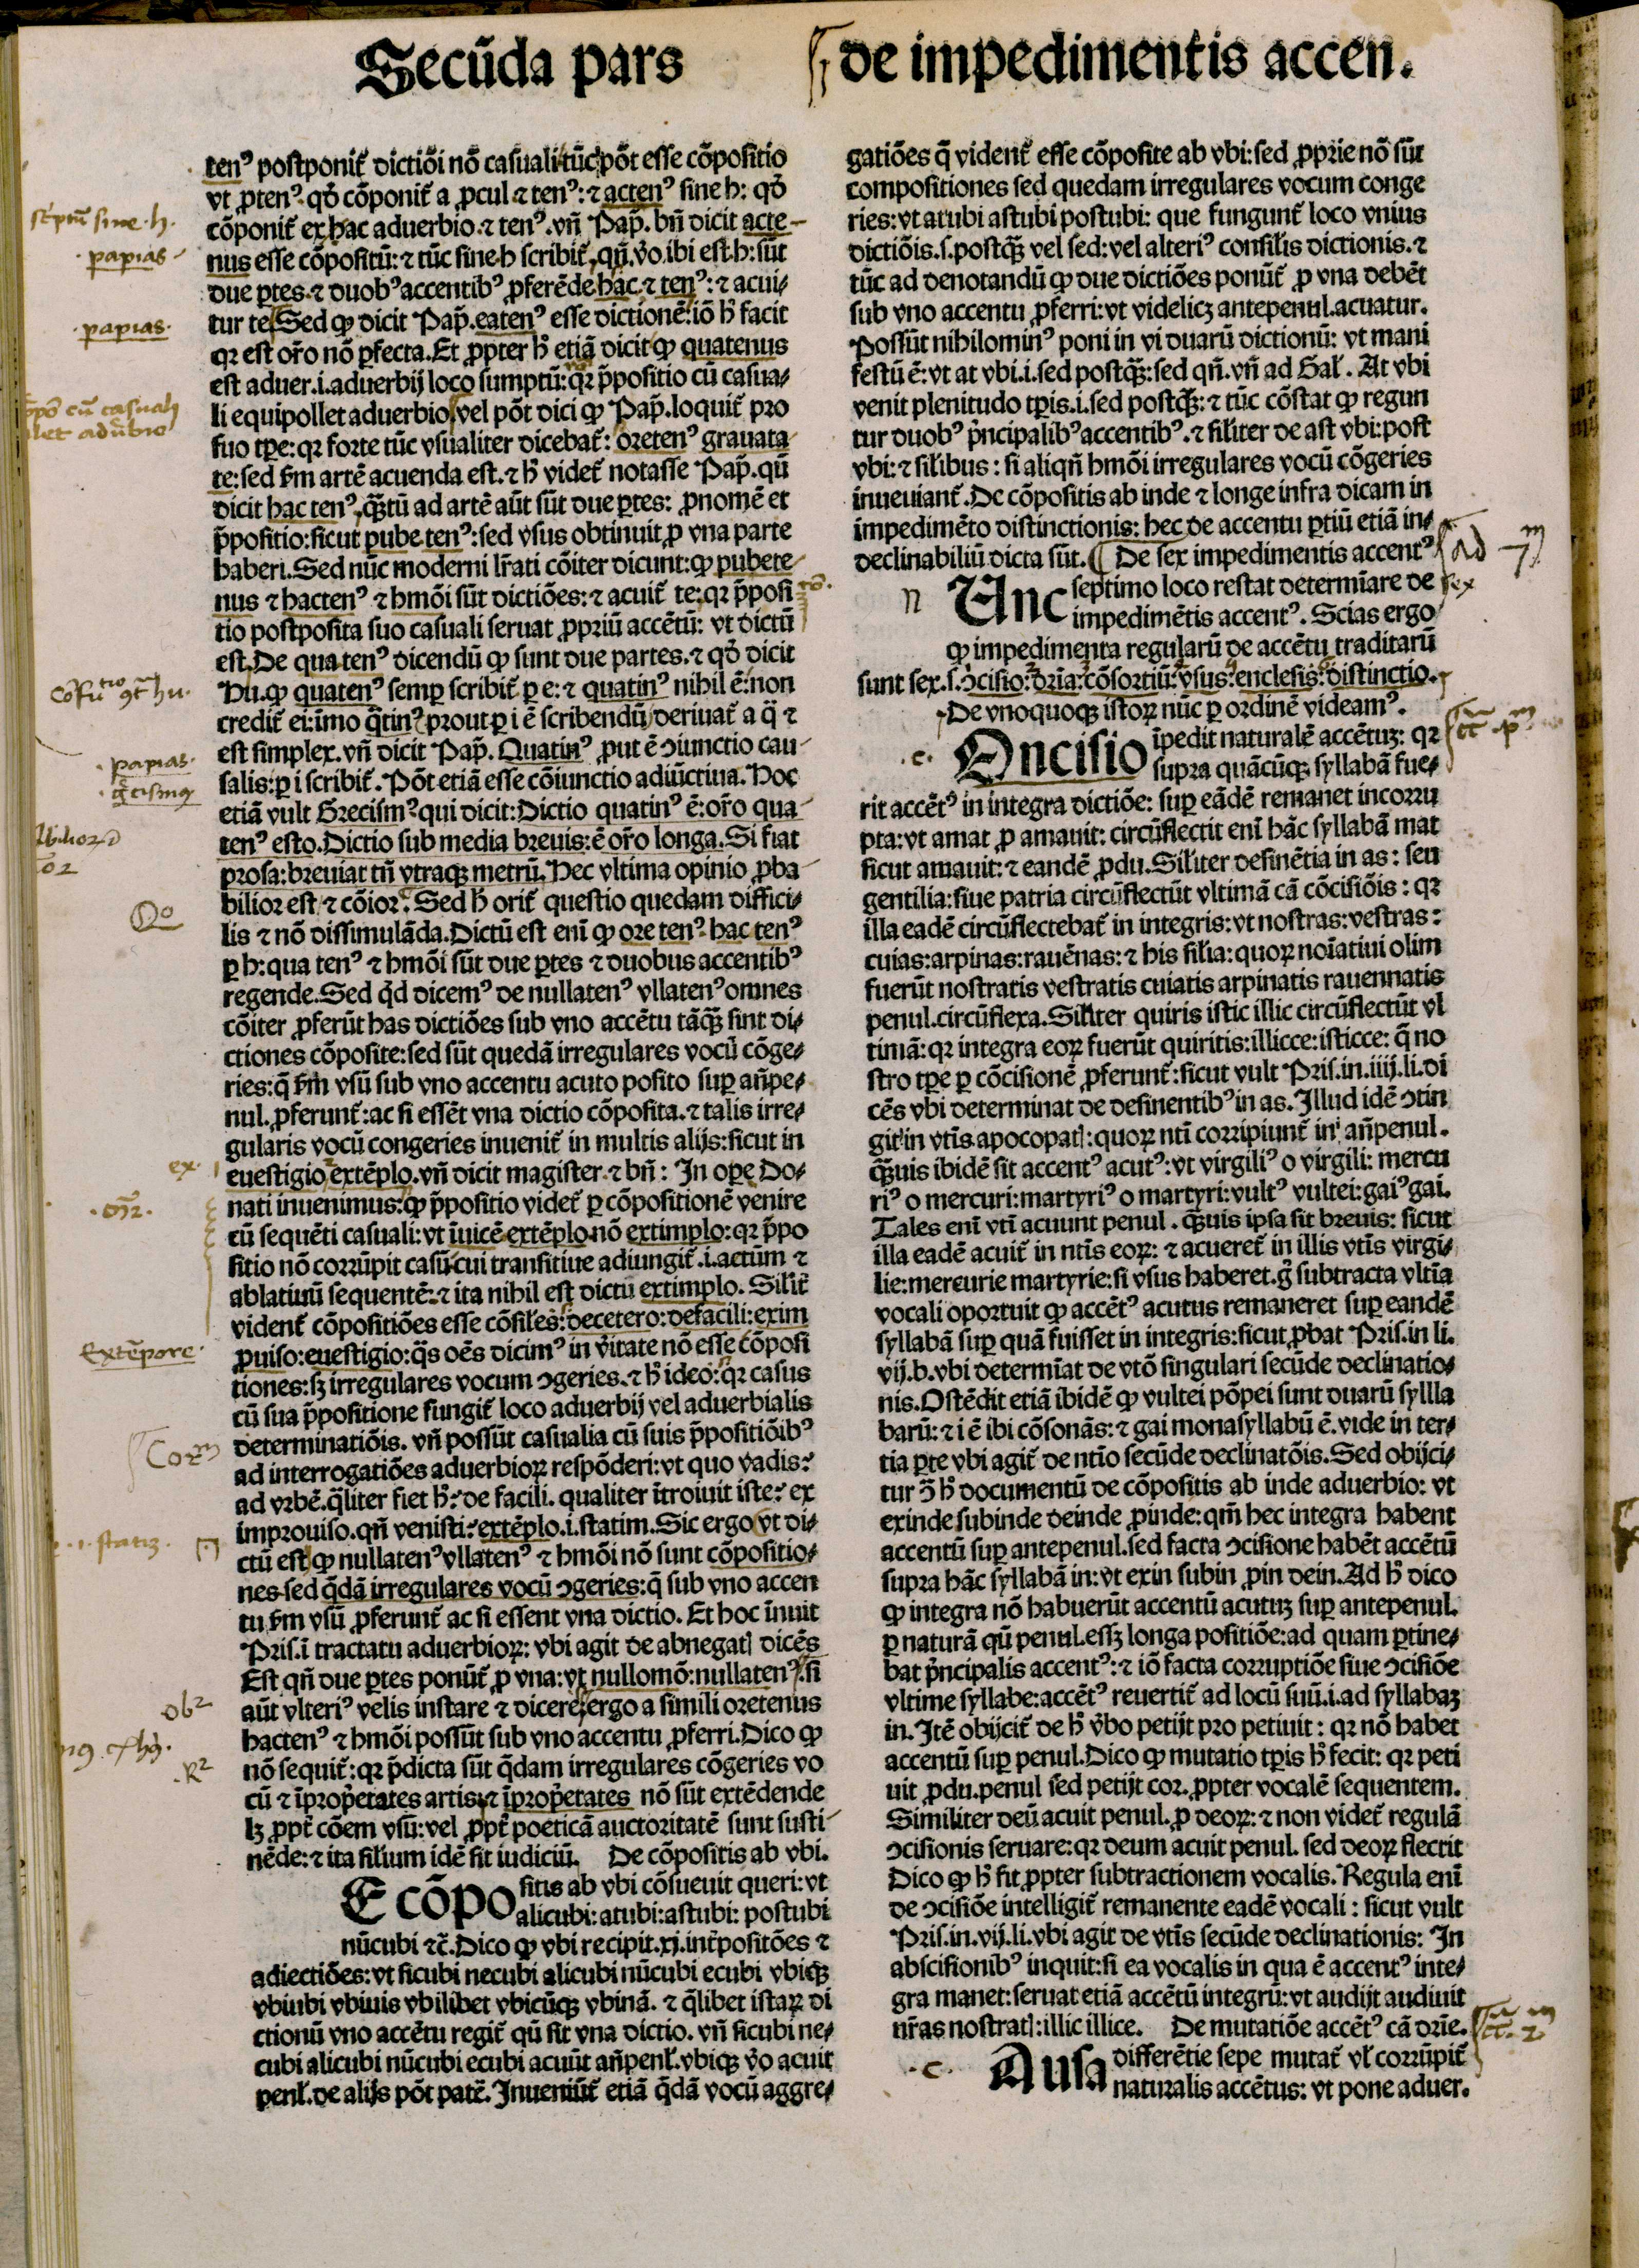 Secūda pars
de impedimentis accen.
tenꝰ postponit̉ dictiōi nō casuali tūc pōt esse cōpositio
vt ꝓtenꝰ. qd̉ cōponit̉ a ꝓcul ⁊ tenꝰ: ⁊ actenꝰ sine h: qd̉
cōponit̉ ex hac aduerbio. ⁊ tenꝰ. vn̄ Pap̄. bn̄ dicit acte-
nus esse cōpositū: ⁊ tūc sine h scribit̉, qn̄. v̉o. ibi est h: sūt
due ꝑtes. ⁊ duobꝰ accentibꝰ ꝓferēde hac ⁊ tenꝰ: ⁊ acui-
tur te. Sed ꝙ dicit Pap̄. eatenꝰ esse dictionē: iō h̉ facit
qꝛ est or̄o nō ꝑfecta. Et ꝓpter h̉ etiā dicit ꝙ quatenus
est aduer. i. aduerbij loco sumptū: qꝛ p̄positio cū casua-
li equipollet aduerbio, vel pōt dici ꝙ Pap̄. loquit̉ pro
suo tꝑe: qꝛ forte tūc vsualiter dicebat̉: oretenꝰ grauata
te: sed ẜm artē acuenda est. ⁊ h̉ videt̉ notasse Pap̄. qn̄
dicit hac tenꝰ, qꝫtū ad artē aūt sūt due ꝑtes: ꝓnomē et
p̄positio: sicut pube tenꝰ: sed vsus obtinuit, ꝓ vna parte
haberi. Sed nūc moderni lr̄ati cōiter dicunt: ꝙ pubete-
nus ⁊ hactenꝰ ⁊ hmōi sūt dictiōes: ⁊ acuit̉ te: qꝛ p̄posi
tio postposita suo casuali seruat ꝓpriū accētū: vt dictū
est. De qua tenꝰ dicendū ꝙ sunt due partes. ⁊ qd̉ dicit
Hu. ꝙ quatenꝰ semꝑ scribit̉ ꝑ e: ⁊ quatinꝰ nihil ē: non
credit̉ ei: īmo q̄tinꝰ prout ꝑ i ē scribendū deriuat̉ a q̄ ⁊
est simplex. vn̄ dicit Pap̄. Quatinꝰ ꝓut ē ɔiunctio cau-
salis: ꝑ i scribit̉. Pōt etiā esse cōiunctio adiūctiua. Hoc
etiā vult Grecismꝰ qui dicit: Dictio quatinꝰ ē: or̄o qua-
tenꝰ esto. Dictio sub media breuis: ē or̄o longa. Si fiat
prosa: breuiat tn̄ vtraqꝫ metrū. Hec vltima opinio ꝓba-
bilior est ⁊ cōior. Sed h̉ orit̉ questio quedam diffici-
lis ⁊ nō dissimulāda. Dictū est eni ꝙ ore tenꝰ. hac tenꝰ
ꝑ h: qua tenꝰ ⁊ hmōi sūt due ꝑtes ⁊ duobus accentibꝰ
regende. Sed qd̄ dicemꝰ de nullatenꝰ vllatenꝰ omnes
cōiter ꝓferūt has dictiōes sub vno accētu tāqꝫ sint di-
ctiones cōposite: sed sūt quedā irregulares vocū cōge-
ries: q̄ ẜm vsū sub vno accentu acuto posito suꝑ an̄pe-
nul. ꝓferunt̉: ac si essēt vna dictio cōposita. ⁊ talis irre-
gularis vocū congeries inuenit̉ in multis alijs: sicut in
euestigio extēplo. vn̄ dicit magister. ⁊ bn̄: In oꝑe Do-
nati inuenimus: ꝙ p̄positio videt̉ ꝑ cōpositionē venire
cū sequēti casuali: vt īuicē extēplo nō extimplo: qꝛ p̄po
sitio nō corrūpit casū cui transitiue adiungit̉. i. actūm ⁊
ablatiuū sequentē: ⁊ ita nihil est dictu extimplo. Silit̉
vident̉ cōpositiōes esse cōsiles: decetero: defacili: exim
ꝓuiso: euestigio: q̄s oēs dicimꝰ in v̉itate nō esse cōposi
tiones: sꝫ irregulares vocum ɔgeries. ⁊ h̉ ideo: qꝛ casus
cū sua p̄positione fungit̉ loco aduerbij vel aduerbialis
determinatiōis. vn̄ possūt casualia cū suis p̄positiōibꝰ
ad interrogatiōes aduerbioꝝ respōderi: vt quo vadis?
ad vrbē. q̄liter fiet h̉? de facili. qualiter ītroiuit iste? ex
improuiso. qn̄ venisti? extēplo. i. statim. Sic ergo vt di-
ctū est ꝙ nullatenꝰ vllatenꝰ ⁊ hmōi nō sunt cōpositio-
nes. sed q̄dā irregulares vocū ɔgeries: q̄ sub vno accen
tu ẜm vsū ꝓferunt̉ ac si essent vna dictio. Et hoc īnuit
Pris. ī tractatu aduerbioꝝ: vbi agit de abnegatꝭ dicēs
Est qn̄ due ꝑtes ponūt̉ ꝓ vna: vt nullomō: nullatenꝰ. si
aūt vlteriꝰ velis instare ⁊ dicere: ergo a simili oretenus
hactenꝰ ⁊ hmōi possūt sub vno accentu ꝓferri. Dico ꝙ
nō sequit̉: qꝛ p̄dicta sūt q̄dam irregulares cōgeries vo
cū ⁊ īprop̉etates artis: ⁊ īprop̉etates nō sūt extēdende
lꝫ ꝓpt̉ cōem vsū: vel ꝓpt̉ poeticā auctoritatē sunt susti-
nēde: ⁊ ita silium idē sit iudiciū. De cōpositis ab vbi.
E cōpo sitis ab vbi cōsueuit queri: vt
alicubi: atubi: astubi: postubi
nūcubi ⁊c̄. Dico ꝙ vbi recipit. xj. int̉positōes ⁊
adiectiōes: vt sicubi necubi alicubi nūcubi ecubi vbiqꝫ
vbiubi vbiuis vbilibet vbicūqꝫ vbinā. ⁊ q̄libet istaꝝ di
ctionū vno accētu regit̉ qū sit vna dictio. vn̄ sicubi ne-
cubi alicubi nūcubi ecubi acuūt an̄penl̉. vbiqꝫ v̉o acuit
penl̉. de alijs pōt patē. Inueniūt̉ etiā q̄dā vocū aggre-
gatiōes q̄ vident̉ esse cōposite ab vbi: sed ꝓprie nō sūt
compositiones sed quedam irregulares vocum conge
ries: vt atubi astubi postubi: que fungunt̉ loco vnius
dictiōis. s. postqꝫ vel sed: vel alteriꝰ consilis dictionis. ⁊
tūc ad denotandū ꝙ due dictiōes ponūt̉ ꝓ vna debēt
sub vno accentu ꝓferri: vt videlicꝫ antepenul. acuatur.
Possūt nihilominꝰ poni in vi duarū dictionū: vt mani
festū ē: vt at vbi. i. sed postqꝫ: sed qn̄. vn̄ ad Gal̉. At vbi
venit plenitudo tꝑis. i. sed postqꝫ: ⁊ tūc cōstat ꝙ regun
tur duobꝰ p̉ncipalibꝰ accentibꝰ. ⁊ sil̉iter de ast vbi: post
vbi: ⁊ sil̉ibus: si aliqn̄ hmōi irregulares vocū cōgeries
inueuiant̉. De cōpositis ab inde ⁊ longe infra dicam in
impedimēto distinctionis: hec de accentu ꝑtiū etiā in-
declinabiliū dicta sūt. ¶ De sex impedimentis accentꝰ
Unc septimo loco restat determīare de
impedimētis accentꝰ. Scias ergo
ꝙ impedimenta regularū de accētu traditarū
sunt sex. s. ɔcisio: dr̄ia: cōsortiū: vsus: enclesis: distinctio.
De vnoquoqꝫ istoꝝ nūc ꝑ ordinē videamꝰ.
Oncisio īpedit naturalē accētuꝫ: qꝛ
supra quācūqꝫ syllabā fue-
rit accētꝰ in integra dictiōe: suꝑ eādē remanet incorru
pta: vt amat ꝓ amauit: circūflectit eni hāc syllabā mat
sicut amauit: ⁊ eandē ꝓdu. Sil̉iter desinētia in as: seu
gentilia: siue patria circūflectūt vltimā cā cōcisiōis: qꝛ
illa eadē circūflectebāt in integris: vt nostras: vestras:
cuias: arpinas: rauēnas: ⁊ his sil̉ia: quoꝝ noīatiui olim
fuerūt nostratis vestratis cuiatis arpinatis rauennatis
penul. circūflexa. Sil̉iter quiris istic illic circūflectūt vl
timā: qꝛ integra eoꝝ fuerūt quiritis: illicce: isticce: q̄ no
stro tꝑe ꝑ cōcisionē ꝓferunt̉: sicut vult Pris. in. iiij. li. di
cēs vbi determinat de desinentibꝰ in as. Illud idē ɔtin
git in vtīs apocopatꝭ: quoꝝ ntī corripiunt̉ in an̄penul.
qꝫuis ibidē sit accentꝰ acutꝰ: vt virgiliꝰ o virgili: mercu
riꝰ o mercuri: martyriꝰ o martyri: vultꝰ vultei: gaiꝰ gai.
Tales eni vtī acuunt penul. qꝫuis ipsa sit breuis: sicut
illa eadē acuit̉ in ntīs eoꝝ: ⁊ acueret̉ in illis vtīs virgi-
lie: mercurie martyrie: si vsus haberet. g̉ subtracta vltīa
vocali oportuit ꝙ accētꝰ acutus remaneret suꝑ eandē
syllabā suꝑ quā fuisset in integris: sicut ꝓbat Pris. in li.
vij. b. vbi determīat de vtō singulari secūde declinatio-
nis. Ostēdit etiā ibidē ꝙ vultei pōpei sunt duarū sylla
barū: ⁊ i ē ibi cōsonās: ⁊ gai monasyllabū ē. vide in ter-
tia ꝑte vbi agit̉ de ntīo secūde declinatōis. Sed obijci-
tur ɔ̄ h̉ documentū de cōpositis ab inde aduerbio: vt
exinde subinde deinde ꝓinde: qm̄ hec integra habent
accentū suꝑ antepenul. sed facta ɔcisione habēt accētū
supra hāc syllabā in: vt exin subin ꝓin dein. Ad h̉ dico
ꝙ integra nō habuerūt accentū acutuꝫ suꝑ antepenul.
ꝑ naturā qū penul. essꝫ longa positiōe: ad quam ꝑtine-
bat p̉ncipalis accentꝰ: ⁊ iō facta corruptiōe siue ɔcisiōe
vltime syllabe: accētꝰ reuertit̉ ad locū suū. i. ad syllabaꝫ
in. Itē obijcit̉ de h̉ v̉bo petijt pro petiuit: qꝛ nō habet
accentū suꝑ penul. Dico ꝙ mutatio tꝑis h̉ fecit: qꝛ peti
uit ꝓdu. penul sed petijt cor. ꝓpter vocalē sequentem.
Similiter deū acuit penul. ꝓ deoꝝ: ⁊ non videt̉ regulā
ɔcisionis seruare: qꝛ deum acuit penul. sed deoꝝ flectit
Dico ꝙ h̉ fit ꝓpter subtractionem vocalis. Regula eni
de ɔcisiōe intelligit̉ remanente eadē vocali: sicut vult
Pris. in. vij. li. vbi agit de vtīs secūde declinationis: In
abscisionibꝰ inquit: si ea vocalis in qua ē accentꝰ inte-
gra manet: seruat etiā accētū integrū: vt audijt audiuit
nr̄as nostratꝭ: illic illice. De mutatiōe accētꝰ cā dr̄ie.
Ausa differētie sepe mutat̉ vl̉ corrūpit̉
naturalis accētus: vt pone aduer.
papias
papias
papias
Extēpore